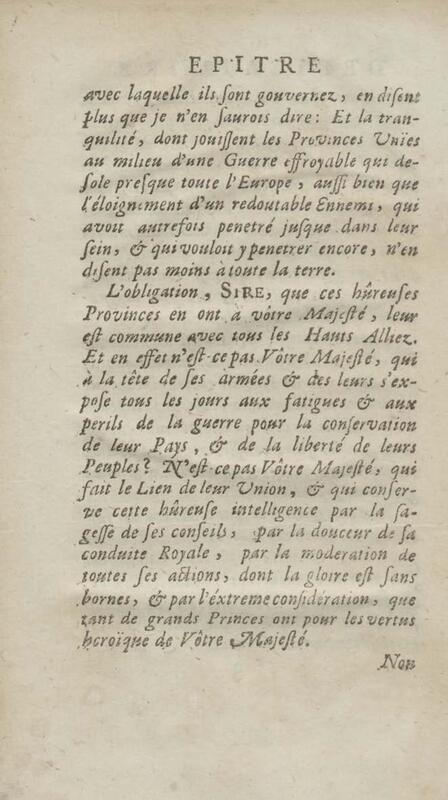 EPITRE
avec laquelle ils ſont gouvernez, en diſent
plus que je n'en ſaurois dire: Et la tran-
quilité, dont jouïſſent les Provinces Unïes
au milieu d'une Guerre effroyable qui de-
ſole preſque toute l'Europe, auſſi bien que
l'éloignement d'un redoutable Ennemi, qui
avoit autrefois penetré juſque dans leur
ſein, & qui vouloit y penetrer encore, n'en
diſent pas moins à toute la terre.
L'obligation, SIRE, que ces hûreuſes
Provinces en ont à vôtre Majeſté, leur
eſt commune avec tous les Hauts Alliez.
Et en effet n'eſt-ce pas Vôtre Majeſté, qui
à la tête de ſes armées & des leurs s'ex-
poſe tous les jours aux fatigues & aux
perils de la guerre pour la conſervation
de leur Pays, & de la liberté de leurs
Peuples? N'eſt-ce pas Vôtre Majeſté, qui
fait le Lien de leur Union, & qui conſer-
ve cette hûreuſe intelligence par la ſa-
geſſe de ſes conſeils, par la douceur de ſa
conduite Royale, par la moderation de
toutes ſes actions, dont la gloire eſt ſans
bornes, & par l'éxtreme conſidération, que
tant de grands Princes ont pour les vertus
heroïque de Vôtre Majeſté.
Non